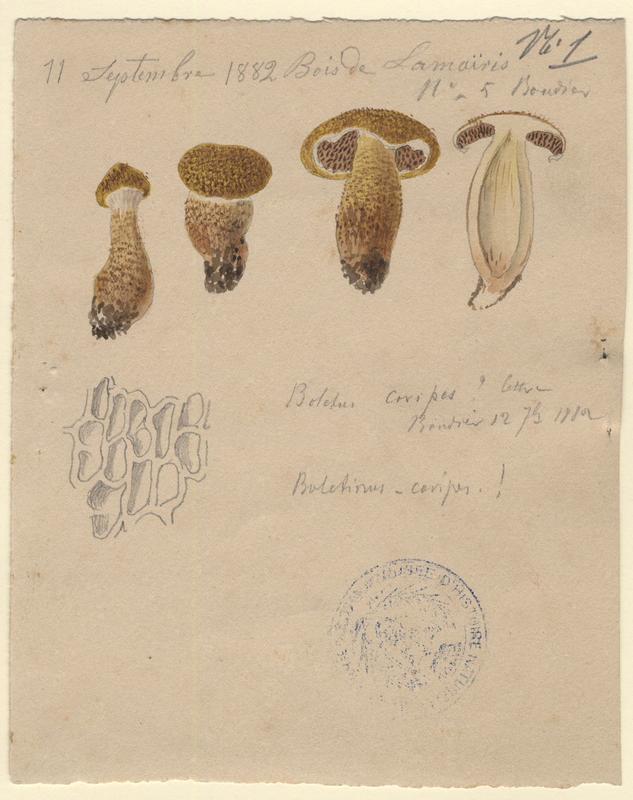 11 Septembre 1882 Bois de Lamaïris
N° 1
N° 5 Boudier
Boletus cavipes ? lettre
Boudier 12 7b 1882
Boletinus - cavipes. !
D'HISTOIRE NATU